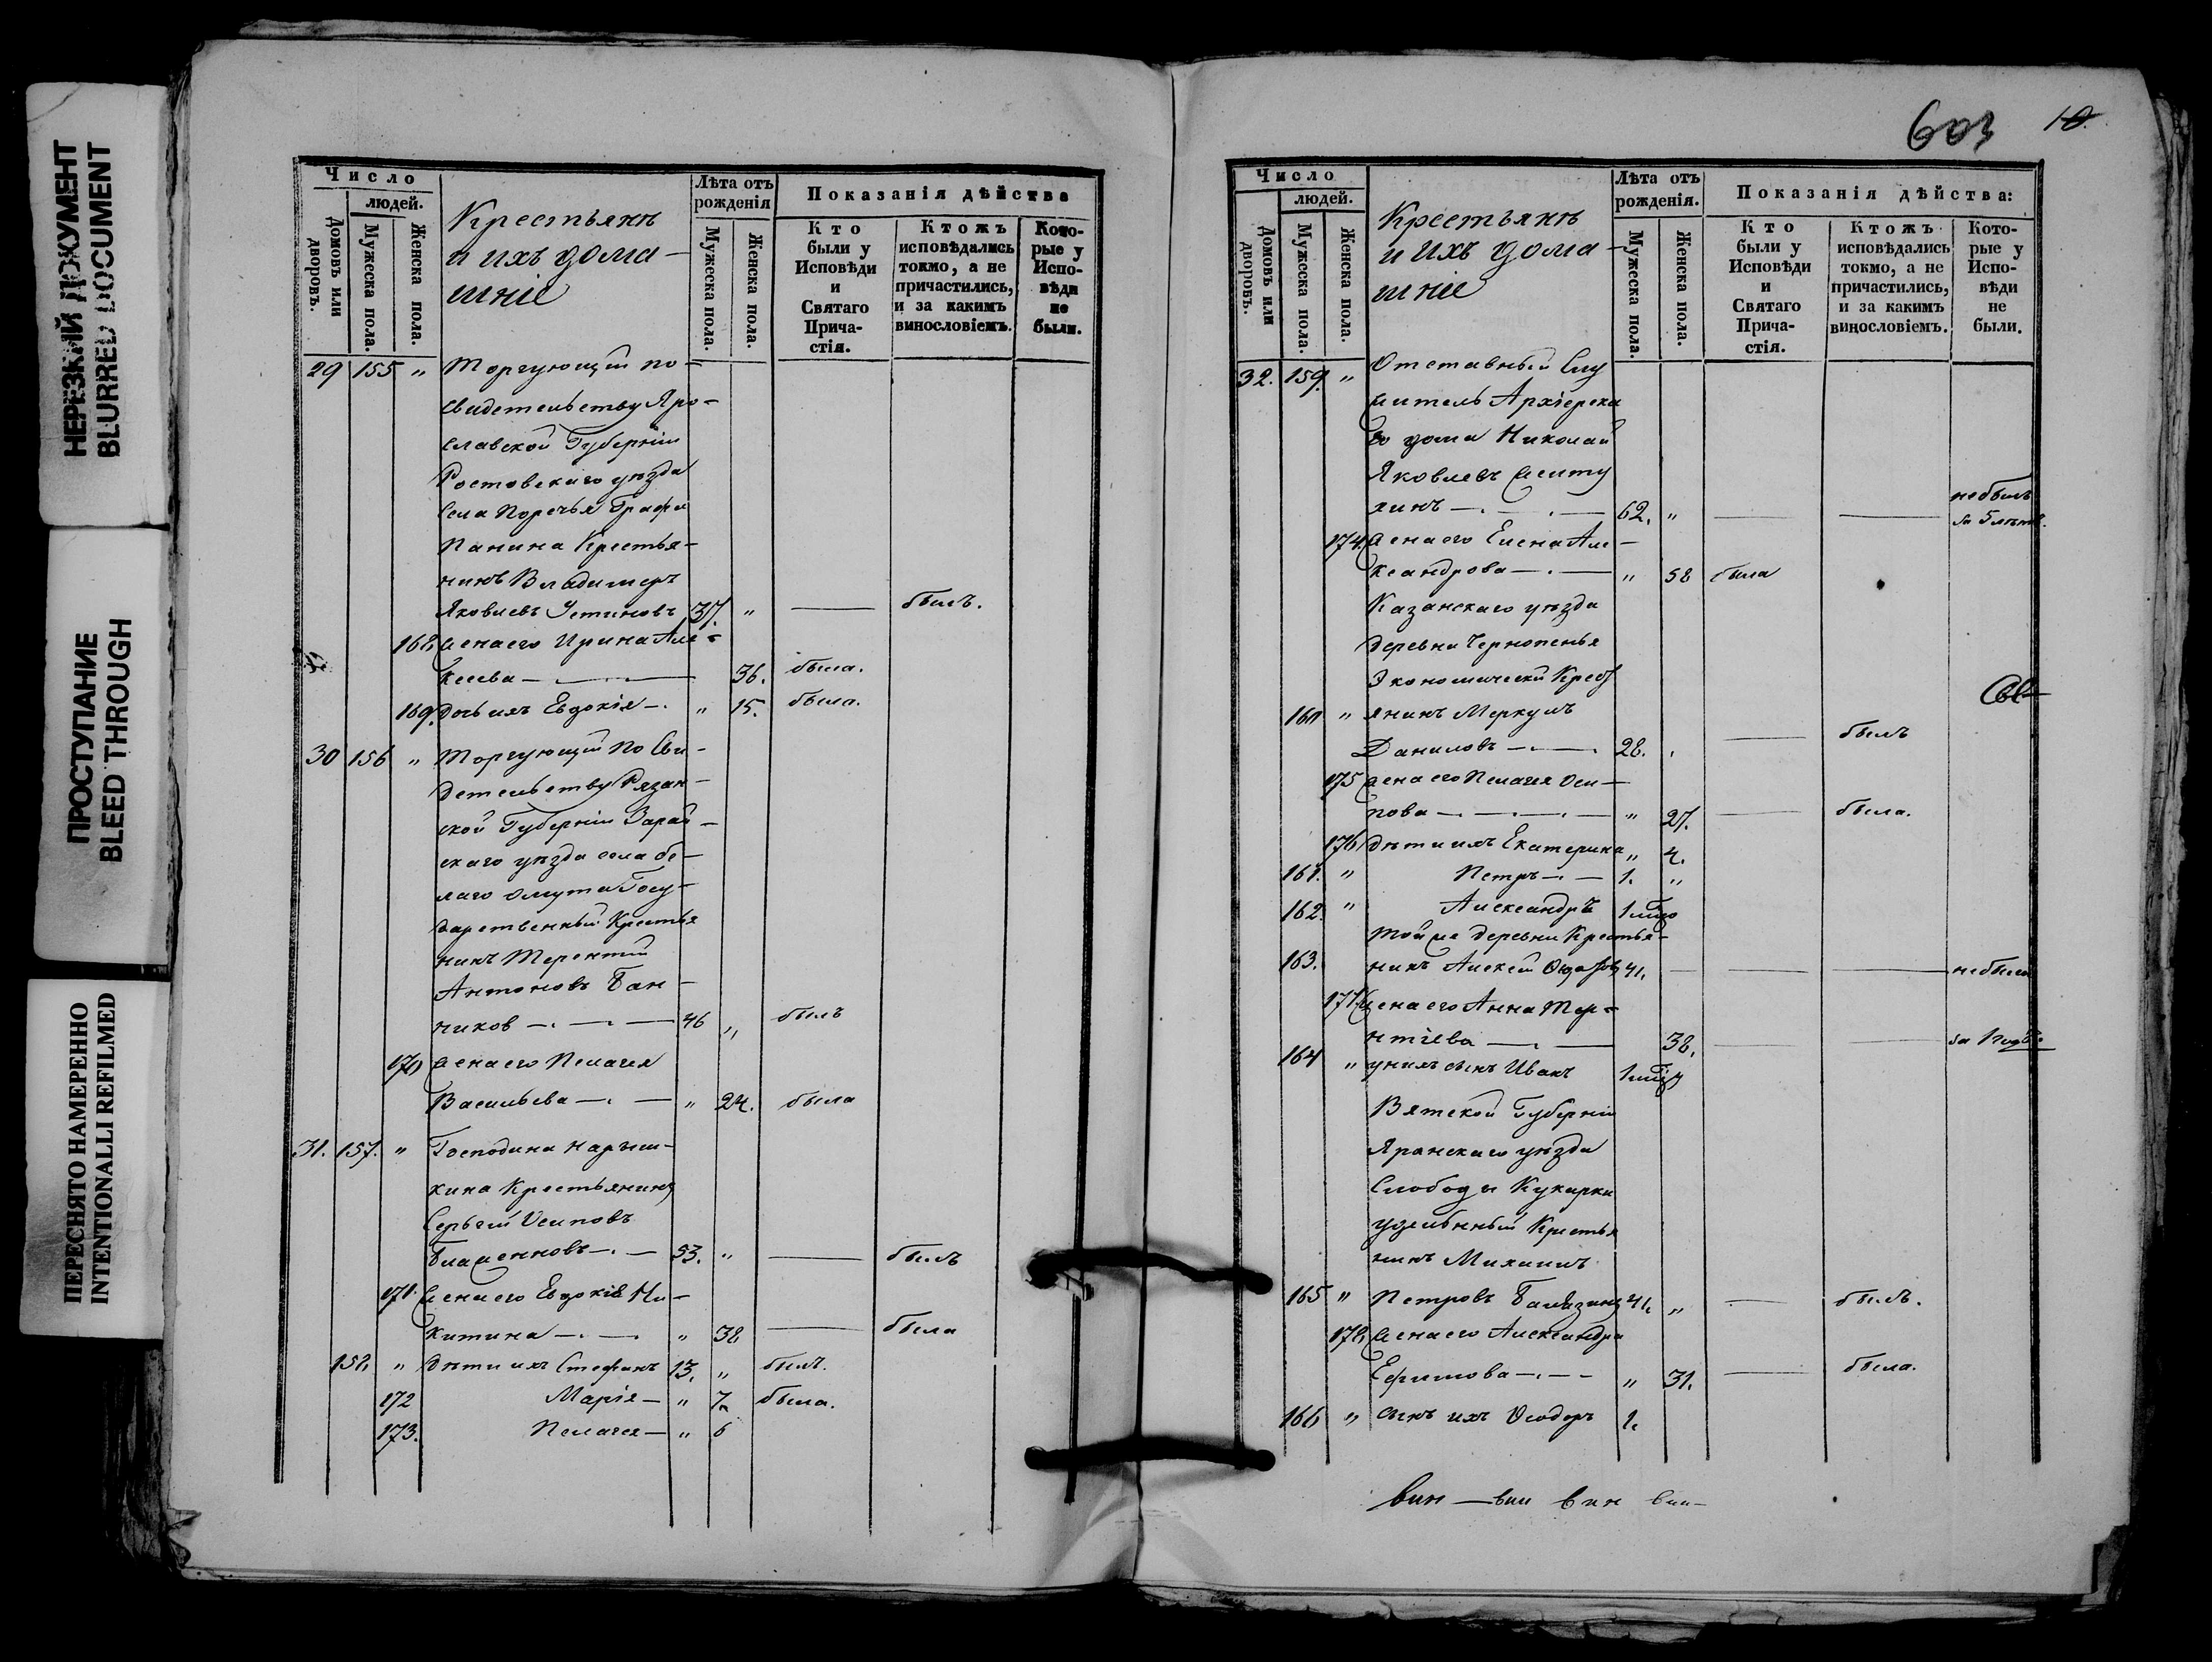 НЕРЕЗКИЙ ДОКУМЕНТ
BLURRED DOCUMENT
ПРОСТУПАНИЕ
BLEED THROUGH
ПЕРЕСНЯТО НАМЕРЕННО
INTENTIONALLI REFILMED
Число
людей.
Домовъ или дворовъ.
Мужеска пола.
Женска пола.
Крестьянъ
и ихъ дома-
шніе
Лѣта отъ рожденія
Мужеска пола.
Женска пола.
Показанія дѣйства
Кто были у Исповѣди и Святаго Прича-стія.
Ктожъ исповѣдались токмо, а не причастились, и за какимъ винословіемъ.
Кото-рые у Испо-вѣди не были.
29 155 " Торгующій по-
свидетельству Яро-
славской Губерніи
Ростовскаго уѣзда
Села Поречья Графа
Панина Крестья-
нинъ Владимеръ
Яковлевъ Устиновъ 37. " — былъ.
168 Жена его Ирина Але-
ксеева — 36. была.
169. Дочь ихъ Евдокія — " 15. была.
30 156 " Торгующій по Сви-
детельству Рязан-
ской Губерніи Зарай-
скаго уѣзда села бе-
лаго омута Госу-
дарственный Крестья
нинъ Терентій
Антоновъ Бан-
ников — 46 " былъ
170 Жена его Пелагея
Васильева — " 24. была
31. 157. " Господина Нарыш-
кина Крестьянинъ
Сергѣй Осиповъ
Блаженновъ — 53. " — былъ
171. Жена его Евдокія Ни-
китина — " 38 — была
158. " Дѣти ихъ Стефанъ 13. " былъ.
172 Марія — " 7. была.
173. Пелагея — " 6
603 10.
Число
людей.
Домовъ или дворовъ.
Мужеска пола.
Женска пола.
Крестьянъ
и ихъ дома-
шніе
Лѣта отъ рожденія.
Мужеска пола.
Женска пола.
Показанія дѣйства:
Кто были у Исповѣди и Святаго Прича-стія.
Ктожъ исповѣдались токмо, а не причастились, и за какимъ винословіемъ.
Кото-рые у Испо-вѣди не были.
32. 159. " Отставный Слу
житель Архіерска
го дома Николай
Яковлевъ
хинъ — 62. " — — небылъ
за 5 лѣтъ.
174. Жена его Елена Але-
ксандрова — " 58 была
Казанскаго уѣзда
деревни Чернопенья
Экономическій Крест
160 " янинъ Меркулъ
Даниловъ — 28. — былъ
175 Жена его Пелагея Оси-
пова — " 27. — была.
176 Дѣти ихъ Екатерина " 4.
161. " Петръ — 1. "
162. " Александръ
Той же деревни Крестья-
163. нинъ Алексѣй 41. — — — небылъ
177. Жена его Анна Тер-
нтіева — 38. — — за 1 годъ.
164 " у нихъ сынъ Иванъ
Вятской Губерніи
Яранскаго уѣзда
Слободы Кукарки
удельнный Крестья
нинъ Михаилъ
165 " Петровъ 41. " — былъ.
178. Жена его Александра
Ефимова — " 31. — была.
166 " сынъ ихъ Ѳеодоръ 1.